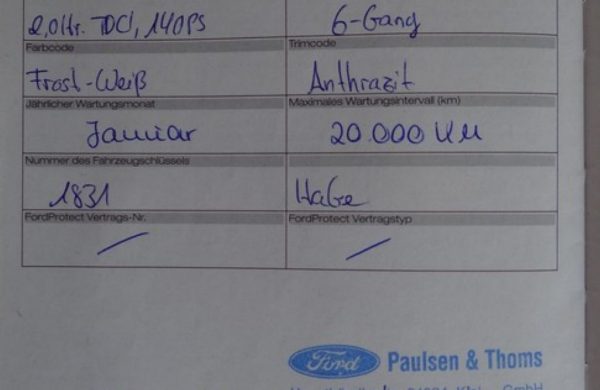 2,0ltr. TDCI, 140PS 6-Gang
Farbcode Trimcode
Frost-Weiß Anthrazit
Jährlicher Wartungsmonat Maximales Wartungsintervall (km)
Januar 20.000 KM
Nummer des Fahrzeugschlüssels
1831
FordProtect Vertrags-Nr. FordProtect Vertragstyp
Ford Paulsen & Thoms